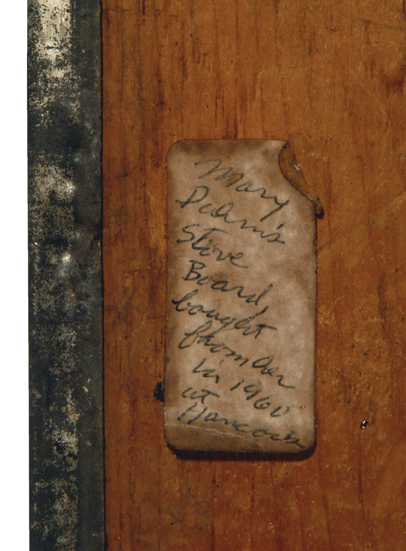 Mary
Dahm's
Stove
Board
bought
from her
in 1960
at
Hancock